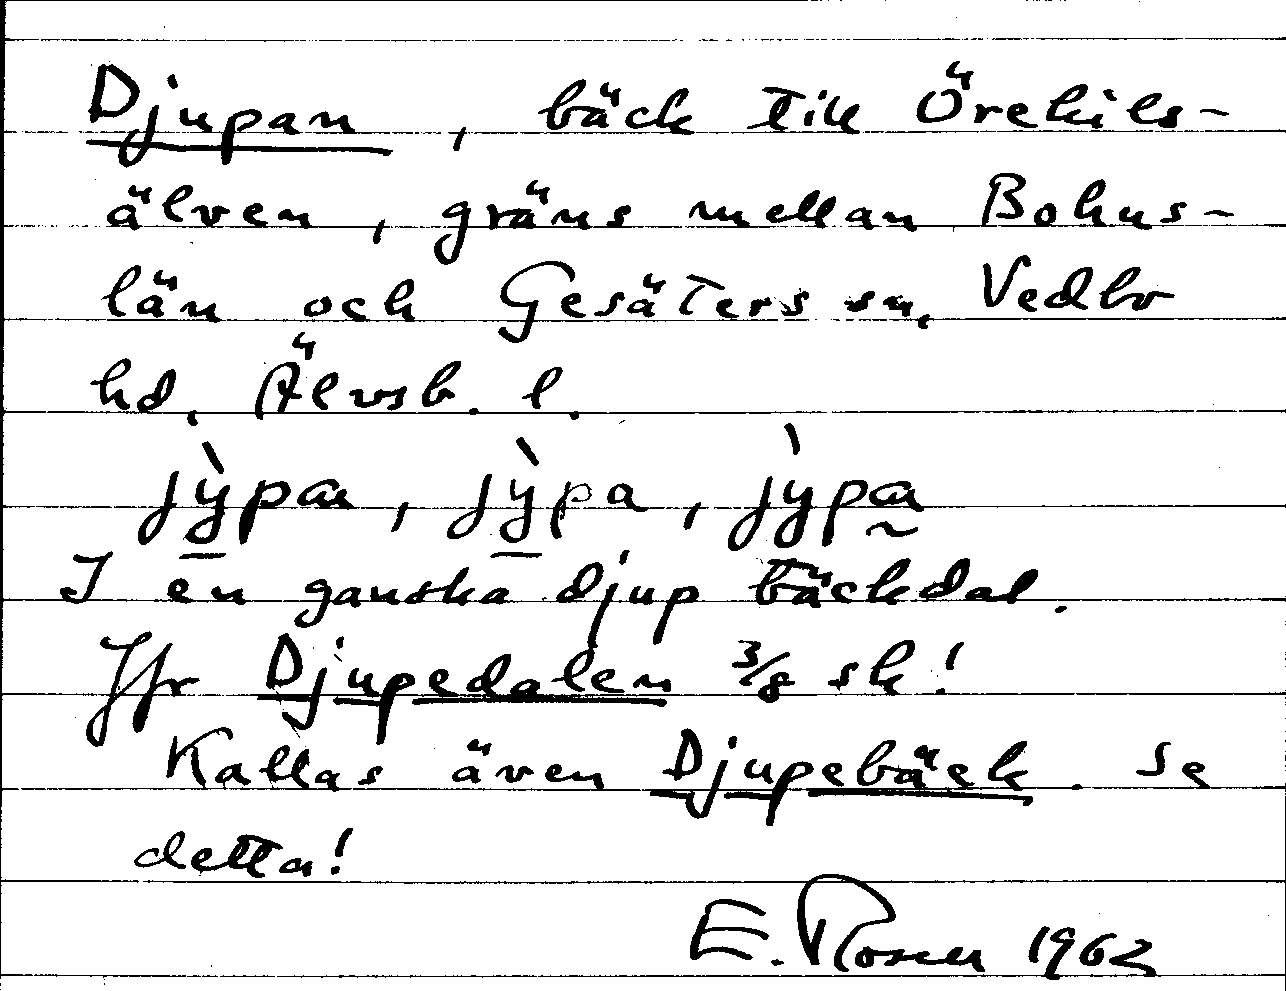 Djupan, bäck till Örekils-
älven, gräns mellan Bohus-
län och Gesäters sn, Vedbo
hd, Älvsb. l.
jỳ̠pan, jỳ̠pa, jỳpa̰
I en ganska djup bäckdal.
Jfr Djupedalen 3/8 sk!
Kallas även Djupebäck. Se
detta!
E. Rosell 1962